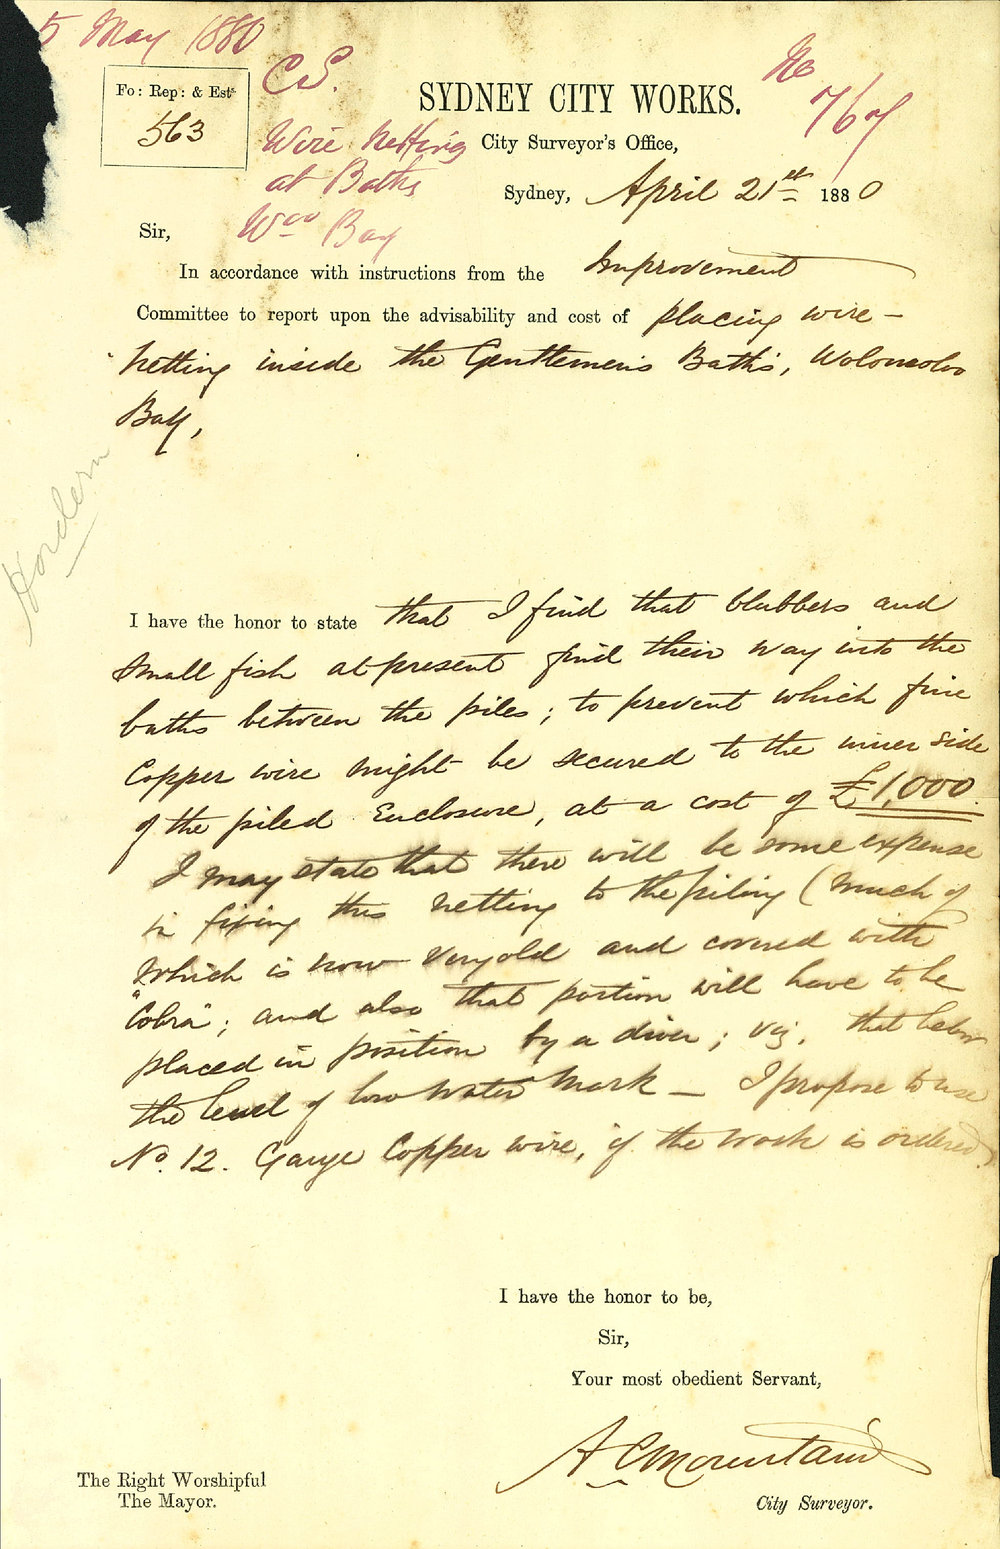 5 May 1880
Fo: Rep: & Ests.
563
C S.
Wire netting
at Baths
Woo Bay
No
767
SYDNEY CITY WORKS.
City Surveyor's Office,
Sydney, April 21st 1880
Sir,
In accordance with instructions from the Improvement
Committee to report upon the advisability and cost of placing wire-
netting inside the Gentlemen's Baths, Woloomooloo
Bay,
Hordern
I have the honor to state that I find that blubbers and
small fish at present find their way into the
baths between the piles; to prevent which fine
Copper wire might be secured to the inner side
of the piled Enclosure, at a cost of £1,000.
I may state that there will be some expense
in fixing this netting to the piling (much of
which is now very old and covered with
"Cobra"; and also that portion will have to be
placed in position by a diver; viz, that below
the level of low water mark — I propose to use
No. 12. Gauge Copper wire, if the work is ordered.)
I have the honor to be,
Sir,
Your most obedient Servant,
A C Mountain
City Surveyor.
The Right Worshipful
The Mayor.